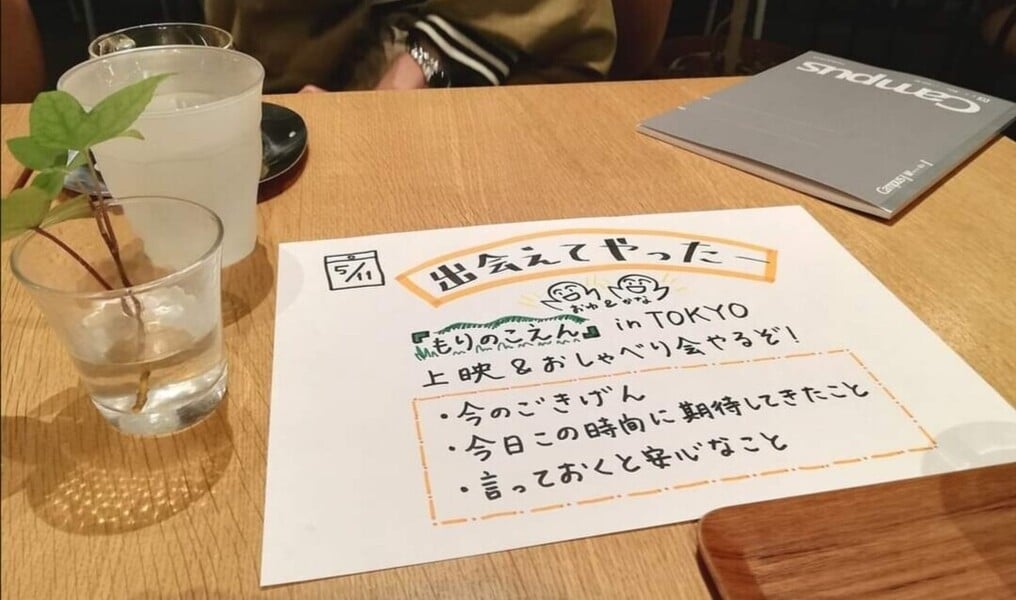 5/11
出会えてやったー
おゆ&かな
『もりのこえん』 in TOKYO
上映&おしゃべり会やるぞ!
・今のごきげん
・今日この時間に期待してきたこと
・言っておくと安心なこと
Campus
Campus